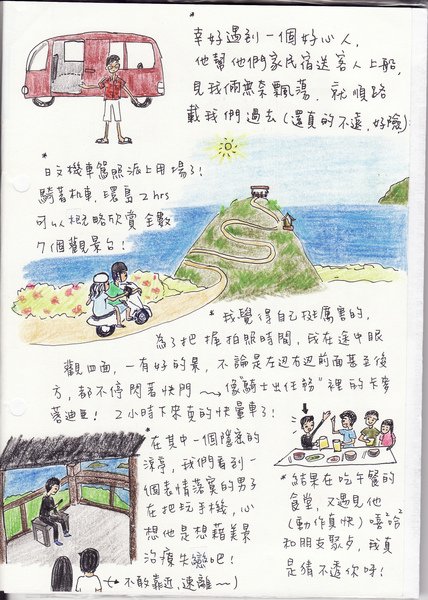 *幸好遇到一個好心人,
他幫他們家民宿送客人上船,
見我倆無奈飄蕩, 就順路
載我們過去(還真的不遠, 好險)
*日文機車駕照派上用場了!
騎著机車, 環島2hrs
可以概略欣賞全數
7個觀景台!
*我覺得自己挺厲害的,
為了把握拍照時間, 我在途中眼
觀四面, 一有好的景, 不論是左边右边前面甚至後
方, 都不停閃著快門~像"騎士出任務"裡的卡麥
2小時下來真的快暈車了!
*在其中一個隱密的
涼亭, 我們看到一
個表情落寞的男子
在把玩手機, 心
想他是想藉美景
治療失戀吧!
(*不敢靠近, 速離~)
*結果在吃午餐的
食堂, 又遇見他
(動作真快)嘻嘻哈哈
和朋友聚夕, 我真
是猜不透你呀!